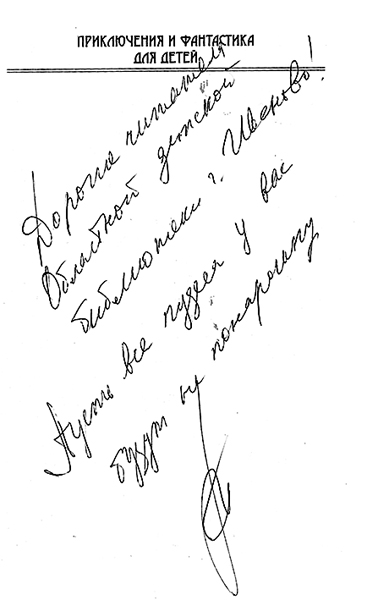 ПРИКЛЮЧЕНИЯ И ФАНТАСТИКА
ДЛЯ ДЕТЕЙ
Дорогие читатели
Областной детской
библиотеки г. Иваново!
Пусть все чудеса у вас
будут не понарошку